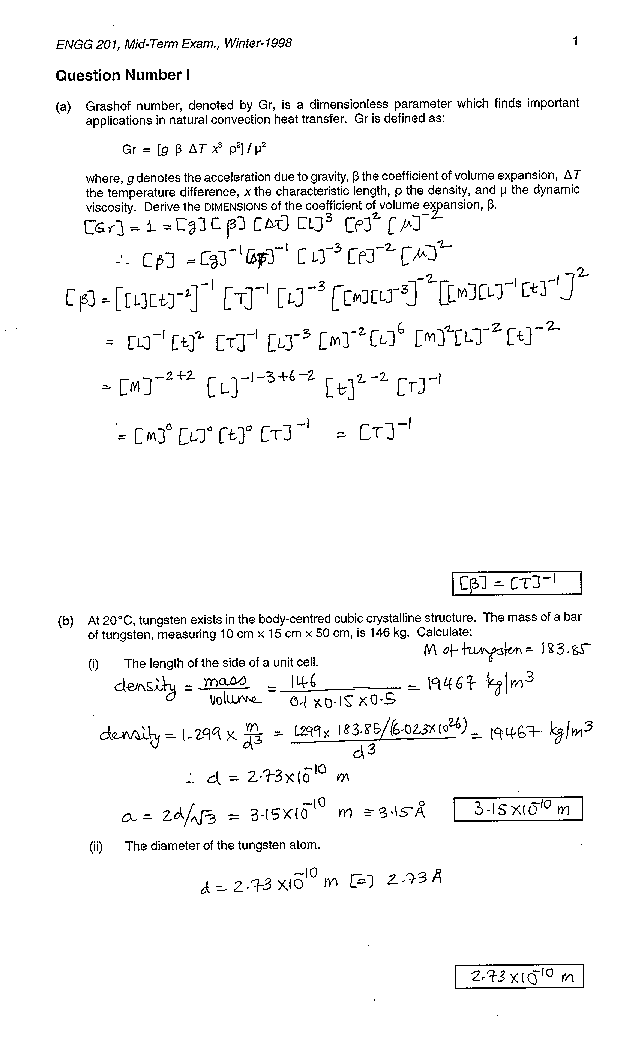 ENGG 201, Mid-Term Exam., Winter-1998 1
Question Number I
(a) Grashof number, denoted by Gr, is a dimensionless parameter which finds important
applications in natural convection heat transfer. Gr is defined as:
Gr = [g β ΔT x³ ρ²] / μ²
where, g denotes the acceleration due to gravity, β the coefficient of volume expansion, ΔT
the temperature difference, x the characteristic length, ρ the density, and μ the dynamic
viscosity. Derive the DIMENSIONS of the coefficient of volume expansion, β.
[Gr] = 1 = [g] [β] [ΔT] [L]³ [ρ]² [μ]⁻²
∴ [β] = [g]⁻¹ [ΔT]⁻¹ [L]⁻³ [ρ]⁻² [μ]²
[β] = [[L][t]⁻²]⁻¹ [T]⁻¹ [L]⁻³ [[M][L]⁻³]⁻² [[M][L]⁻¹ [t]⁻¹]²
= [L]⁻¹ [t]² [T]⁻¹ [L]⁻³ [M]⁻² [L]⁶ [M]² [L]⁻² [t]⁻²
= [M]⁻²⁺² [L]⁻¹⁻³⁺⁶⁻² [t]²⁻² [T]⁻¹
= [M]⁰ [L]⁰ [t]⁰ [T]⁻¹ = [T]⁻¹
[β] = [T]⁻¹
(b) At 20°C, tungsten exists in the body-centred cubic crystalline structure. The mass of a bar
of tungsten, measuring 10 cm x 15 cm x 50 cm, is 146 kg. Calculate:
M of tungsten = 183.85
(i) The length of the side of a unit cell.
density = mass/volume = 146/(0.1 x 0.15 x 0.5) = 19467 kg/m³
density = 1.299 x m/d³ = 1.299 x 183.85/(6.023x10²⁶)/d³ = 19467 kg/m³
∴ d = 2.73x10⁻¹⁰ m
a = 2d/√3 = 3.15x10⁻¹⁰ m = 3.15 Å 3.15 x10⁻¹⁰ m
(ii) The diameter of the tungsten atom.
d = 2.73 x10⁻¹⁰ m [=] 2.73 Å
2.73 x10⁻¹⁰ m